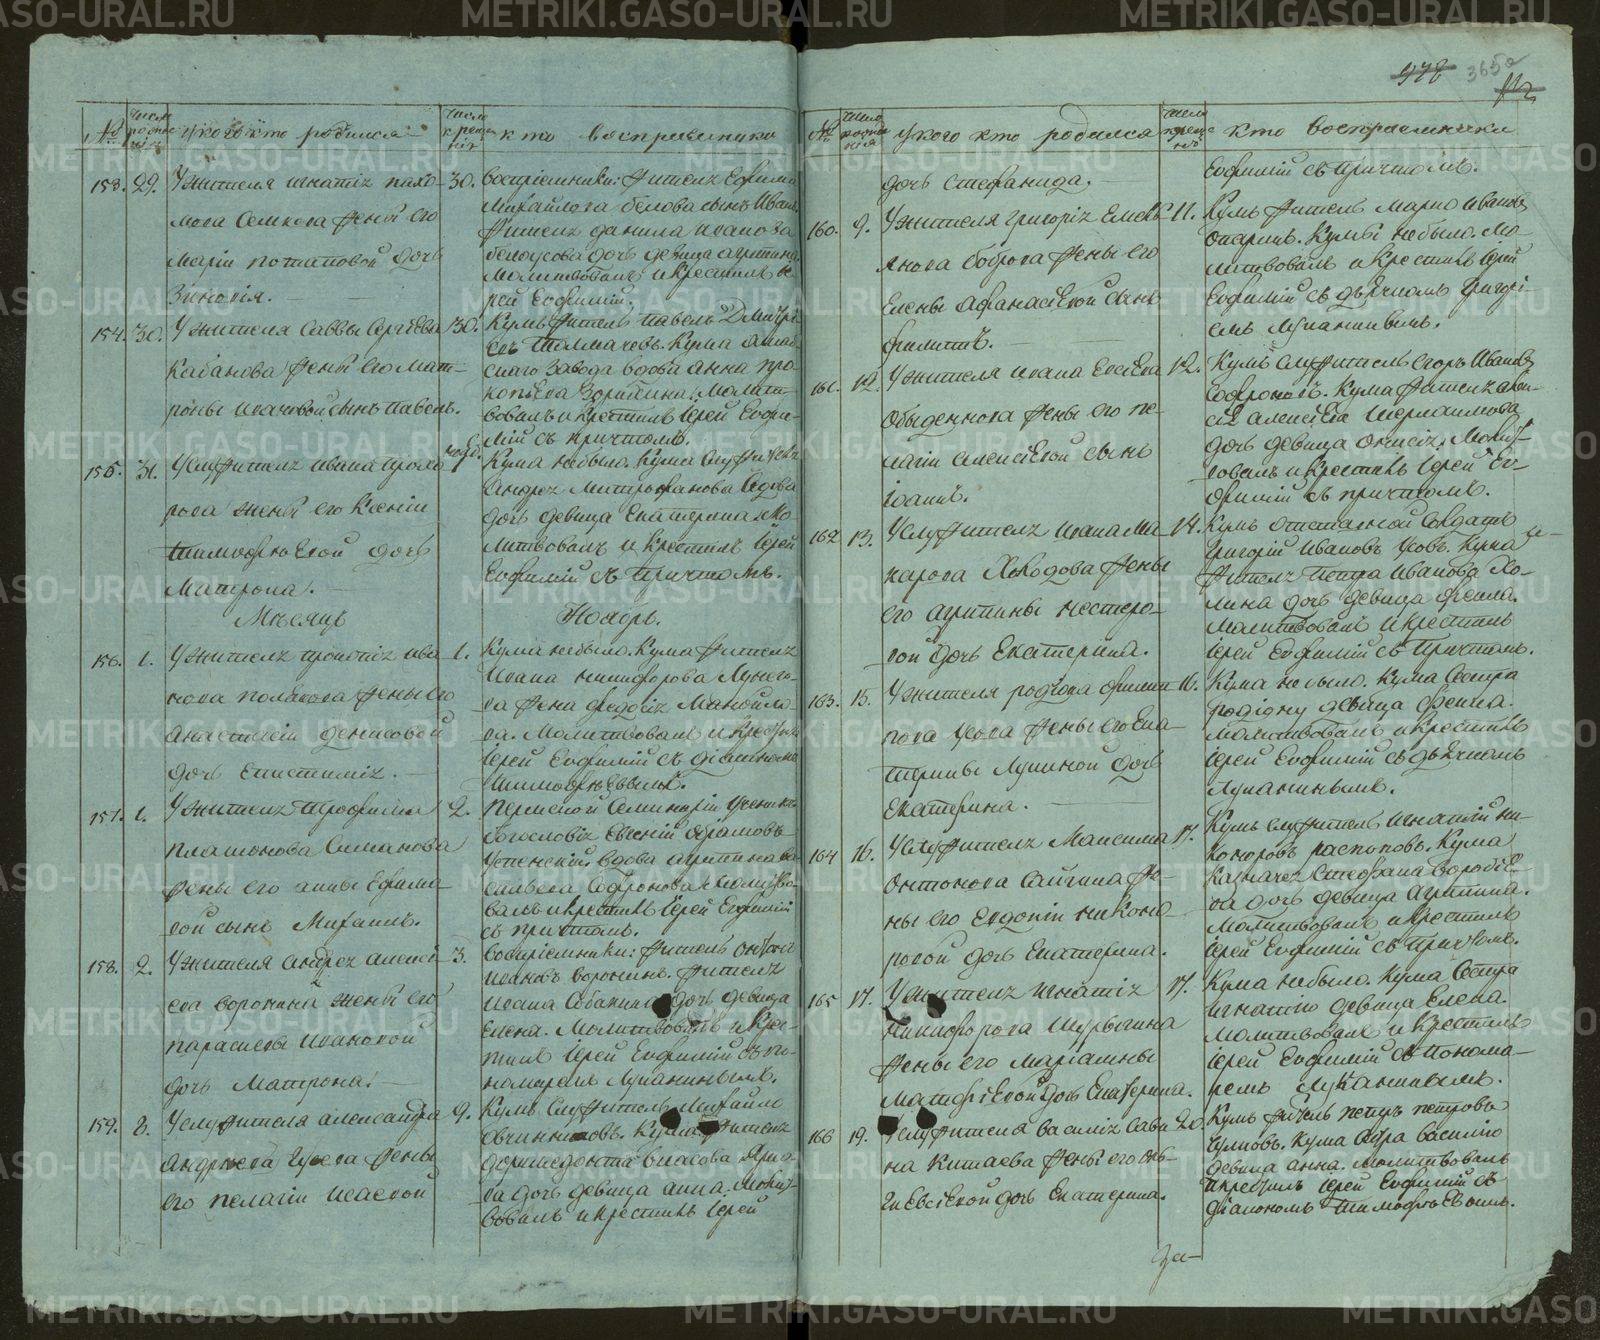 №
Число рожденія
У кого кто родился
Число крещенія
Кто воспріемники
153. 29. У жителя Игнатія Пахо-
мова Семкова жены его
Маріи Потаповой дочь
Зиновія.
30. Воспріемники: житель Ефима
Михайлова Белова сынъ Иванъ,
жителя Данила Иванова
Белоусова дочь девица Агрипина.
Молитвовалъ и крестилъ Іе-
рей Евфимій.
154. 30. У жителя Саввы Сергѣева
Кабанова жены его Мат-
роны Ивановой сынъ Павелъ.
30. Кумъ житель Павелъ Дмитрі-
евъ Толмачевъ. Кума
скаго завода вдова Анна Про-
копьева. Молит-
вовалъ и крестилъ Іерей Евфи-
мій съ причтомъ.
155. 31. У служителя Ивана
рова жены его Ксеніи
Тимофѣевой дочь
Матрона.
нояб. 1.
Кума небыло. Кума служителя
Андрея Митрофанова
дочь девица Екатерина. Мо-
литвовалъ и крестилъ Іерей
Евфимій съ причтомъ.
Мѣсяцъ Ноябрь.
156. 1. У жителя Ива-
нова Полякова жены его
Анастасіи Денисовой
дочь Епистимія.
1. Кума небыло. Кума жителя
Ивана Никифорова
ва жена Федосія Манойло-
ва. Молитвовалъ и крестилъ
Іерей Евфимій съ діакономъ
Тимофѣевымъ.
157. 1. У жителя Трофима
Платонова Симанова
жены его Анны Ефимо-
вой сынъ Михаилъ.
2. Пермской Семинаріи ученикъ
богословія Евгеній
Успенскій. вдова Агрипина Ва-
сильева Софронова. Молитво-
валъ и крестилъ Іерей Евфимій
съ причтомъ.
158. 2. У жителя Андрея Алексѣ-
ева Воронина жены его
Парасковьи Ивановой
дочь Матрона.
3. Воспріемники: житель
Ивановъ Воронинъ. жителя
Ивана Собакина дочь девица
Елена. Молитвовалъ и крес-
тилъ Іерей Евфимій съ по-
номаремъ Лупанинымъ.
159. 8. У служителя Александра
Андреева Гусева жены
его Пелагіи Исаевой
9. Кумъ служитель Михайло
Овчинниковъ. Кума жителя
Доримедонта Власова
ва дочь девица Анна. Молит-
вовалъ и крестилъ Іерей
978 365
112
№
Число рожденія
У кого кто родился
Число крещенія
Кто воспріемники
дочь Стефанида.
Евфимій съ причтомъ.
160. 9. У жителя Григорія Емель-
янова Боброва жены его
Елены Афанасіевой сынъ
Филиппъ.
11. Кумъ житель Марко Ивановъ
Опаринъ. Кумы небыло. Мо-
литвовалъ и крестилъ Іерей
Евфимій съ дьячкомъ Григорі-
емъ Лупанинымъ.
161. 12. У жителя Ивана Евсѣева
Обыденнова жены его Пе-
лагіи Алексіевой сынъ
Іоаннъ.
12. Кумъ служитель Егоръ Ивановъ
Софроновъ. Кума жителя Алек-
сія Алексѣева
дочь девица Анисія. Молит-
вовалъ и крестилъ Іерей Ев-
фимій съ причтомъ.
162 13. У служителя Ивана Ма-
карова Холодова жены
его Агрипины Нестеро-
вой дочь Екатерина.
14. Кумъ отставной Солдатъ
Григорій Ивановъ Усовъ. Кума
жителя Петра Иванова Хо-
лина дочь девица Фекла.
Молитвовалъ и крестилъ
Іерей Евфимій съ причтомъ.
163. 15. У жителя Родіона Филип-
пова Усова жены его Ека-
терины Лукиной дочь
Екатерина.
16. Кума не было. Кума Сестра
родіону девица Фекла.
Молитвовалъ и крестилъ
Іерей Евфимій съ дьячкомъ
Лупанинымъ.
164 16. У служителя Максима
Онтонова Сайгина же-
ны его Евдокіи Никоно-
ровой дочь Екатерина.
17. Кумъ служитель Игнатій Ни-
коноровъ Распоповъ. Кума
казначея Стефана Воробіе-
ва дочь девица Агрипина.
Молитвовалъ и крестилъ
Іерей Евфимій съ причтомъ.
165 17. У жителя Игнатія
Никифорова Шурыгина
жены его Маріамны
Матфіевой дочь Екатерина.
17. Кума небыло. Кума Сестра
игнатію девица Елена.
Молитвовалъ и крестилъ
Іерей Евфимій съ понома-
ремъ Лупанинымъ.
166 19. У служителя Василія Сави-
на Китаева жены его
дочь Екатерина.
20. Кумъ житель Петръ Петровъ
Чулковъ. Кума Сестра Василію
девица Анна. Молитвовалъ
и крестилъ Іерей Евфимій съ
діакономъ Тимофѣевымъ.
METRIKI.GASO-URAL.RU